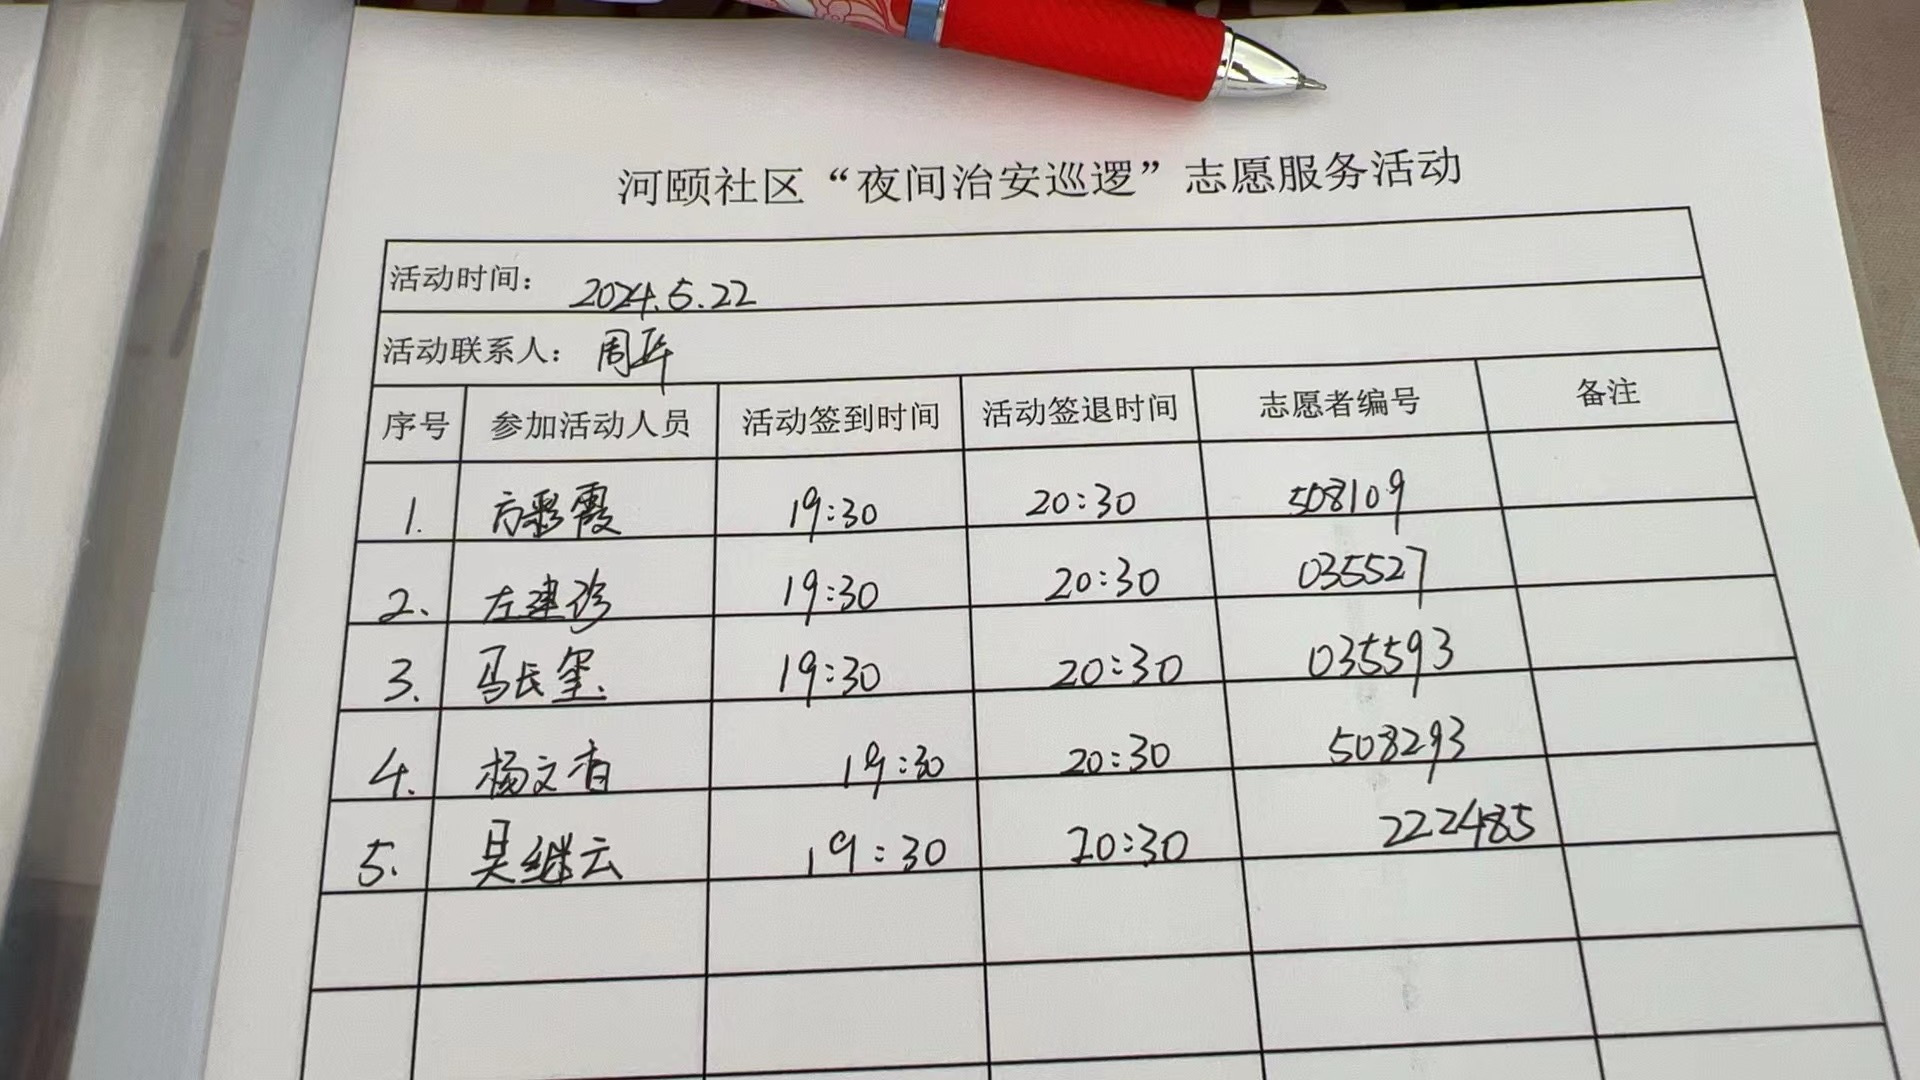 河颐社区“夜间治安巡逻”志愿服务活动
活动时间: 2024.5.22
活动联系人: 周华
序号 参加活动人员 活动签到时间 活动签退时间 志愿者编号 备注
1. 方彩霞 19:30 20:30 508109
2. 左建珍 19:30 20:30 035527
3. 马长玺 19:30 20:30 035593
4. 杨文香 19:30 20:30 508293
5. 吴继云 19:30 20:30 222485